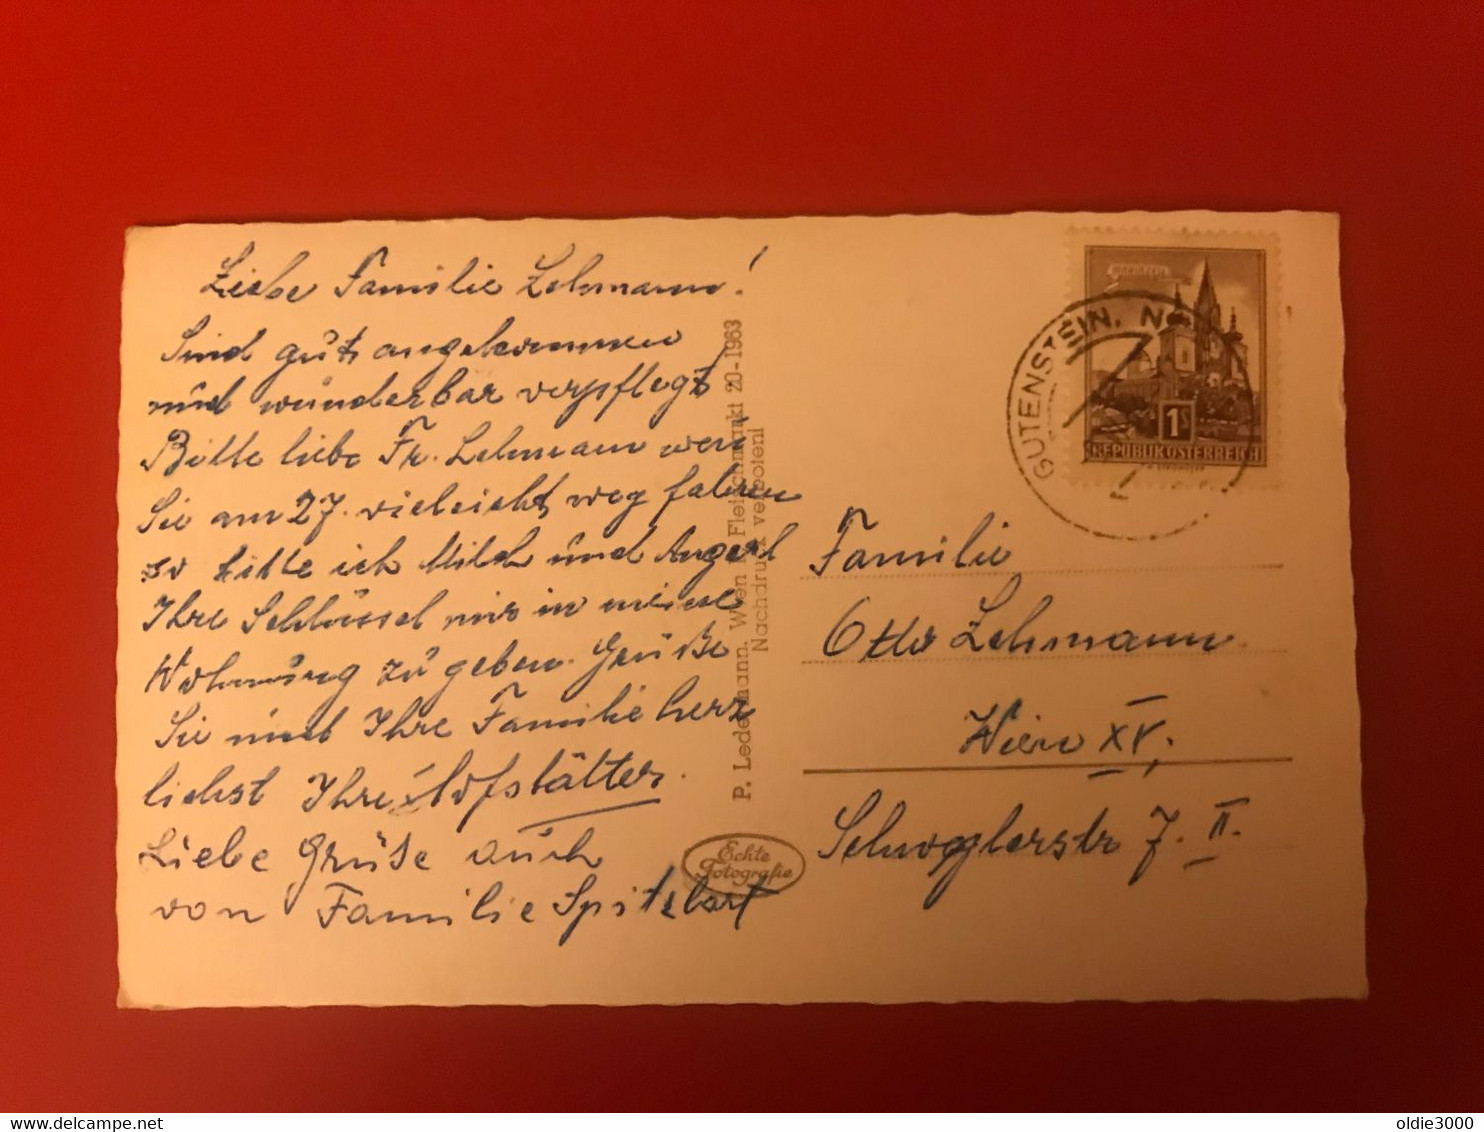 Liebe Familie Lehmann!
Sind gut angekommen
und wunderbar verpflegt
Bitte liebe Fr. Lehmann wen
Sie am 27. vieleicht weg fahren
so bitte ich Milch und
Ihre Schlüssel mir in meine
Wohnung zu geben. Grüße
Sie und Ihre Familie herz
lichst Ihre Hofstätter.
Liebe Grüße auch
von Familie Spitzbart
P. Ledermann, Wien I, Fleischmarkt 20-1963
Nachdruck verboten!
Echte
Fotografie
GUTENSTEIN, N
MARIAZELL
1S
REPUBLIK ÖSTERREICH
Familie
Otto Lehmann
Wien XV.
Schwoglerstr 7. II.
delcampe.net
oldie3000